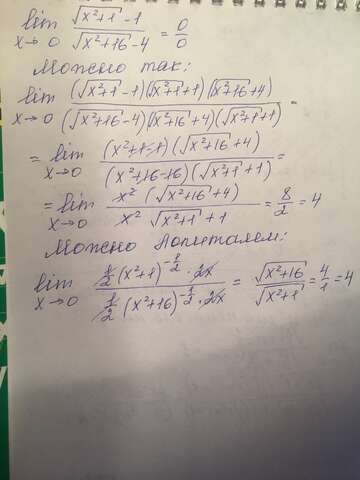 lim x→0 (√(x²+1) - 1)/(√(x²+16) - 4) = 0/0
Можно так:
lim x→0 ((√(x²+1) - 1)(√(x²+1) + 1)(√(x²+16) + 4))/((√(x²+16) - 4)(√(x²+16) + 4)(√(x²+1) + 1)) =
= lim x→0 ((x²+1-1)(√(x²+16) + 4))/((x²+16-16)(√(x²+1) + 1)) =
= lim x→0 (x²(√(x²+16) + 4))/(x² √(x²+1) + 1) = 8/2 = 4
Можно Лопиталем:
lim x→0 (1/2 (x²+1)^(-1/2) · 2x)/(1/2 (x²+16)^(-1/2) · 2x) = √(x²+16)/√(x²+1) = 4/1 = 4